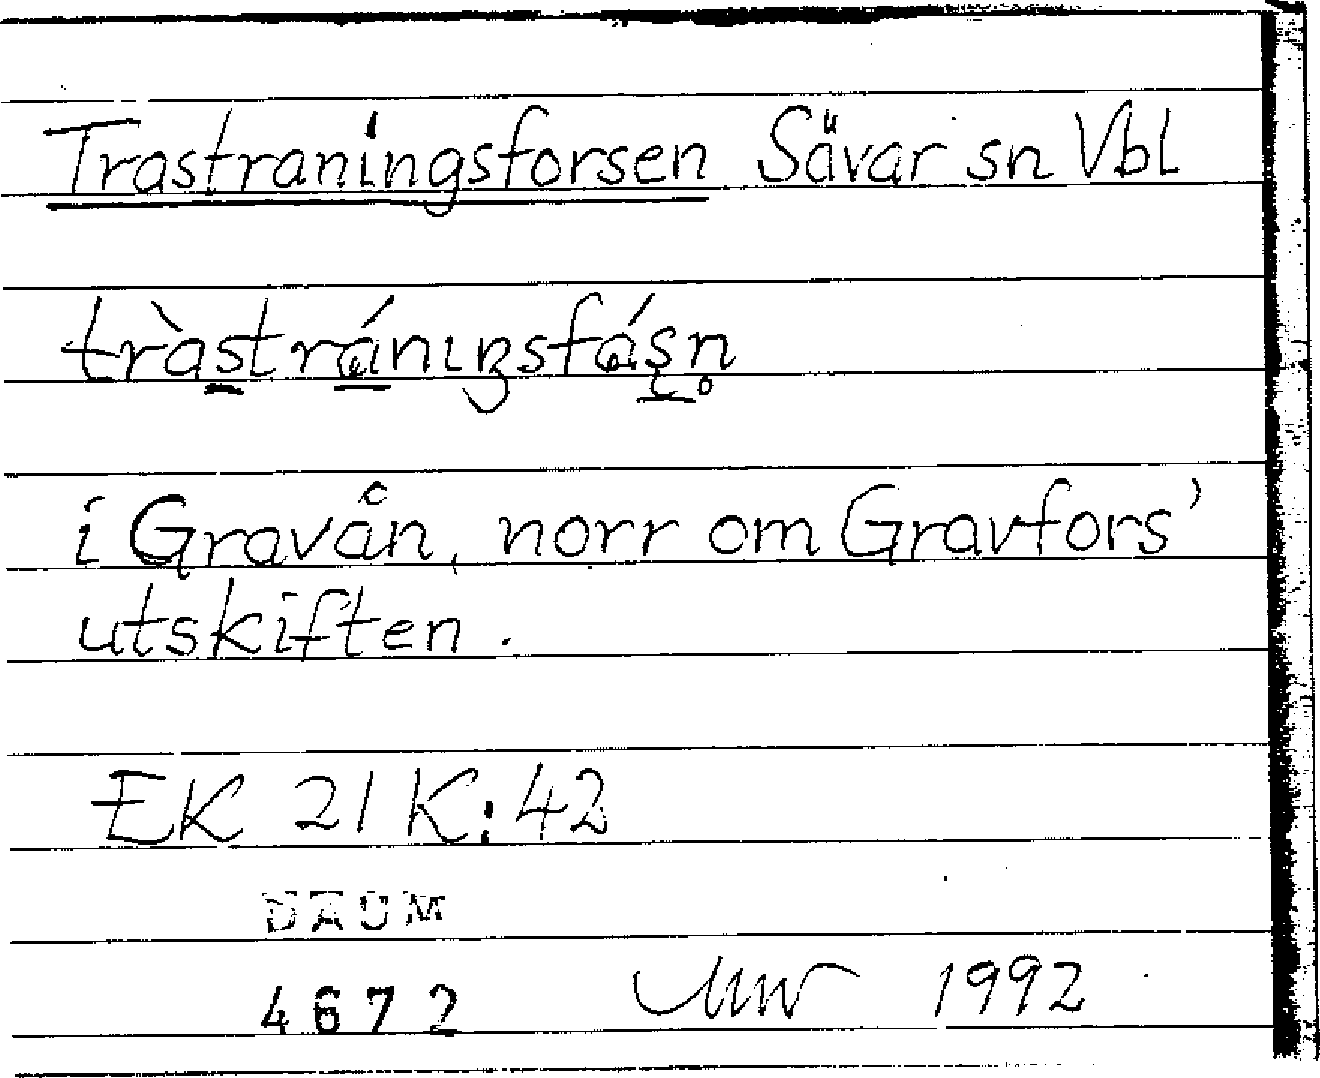 Trastraningsforsen Sävar sn Vbl
i Gravån, norr om Gravfors'
utskiften.
EK 21 K:42
DAUM
4672 1992